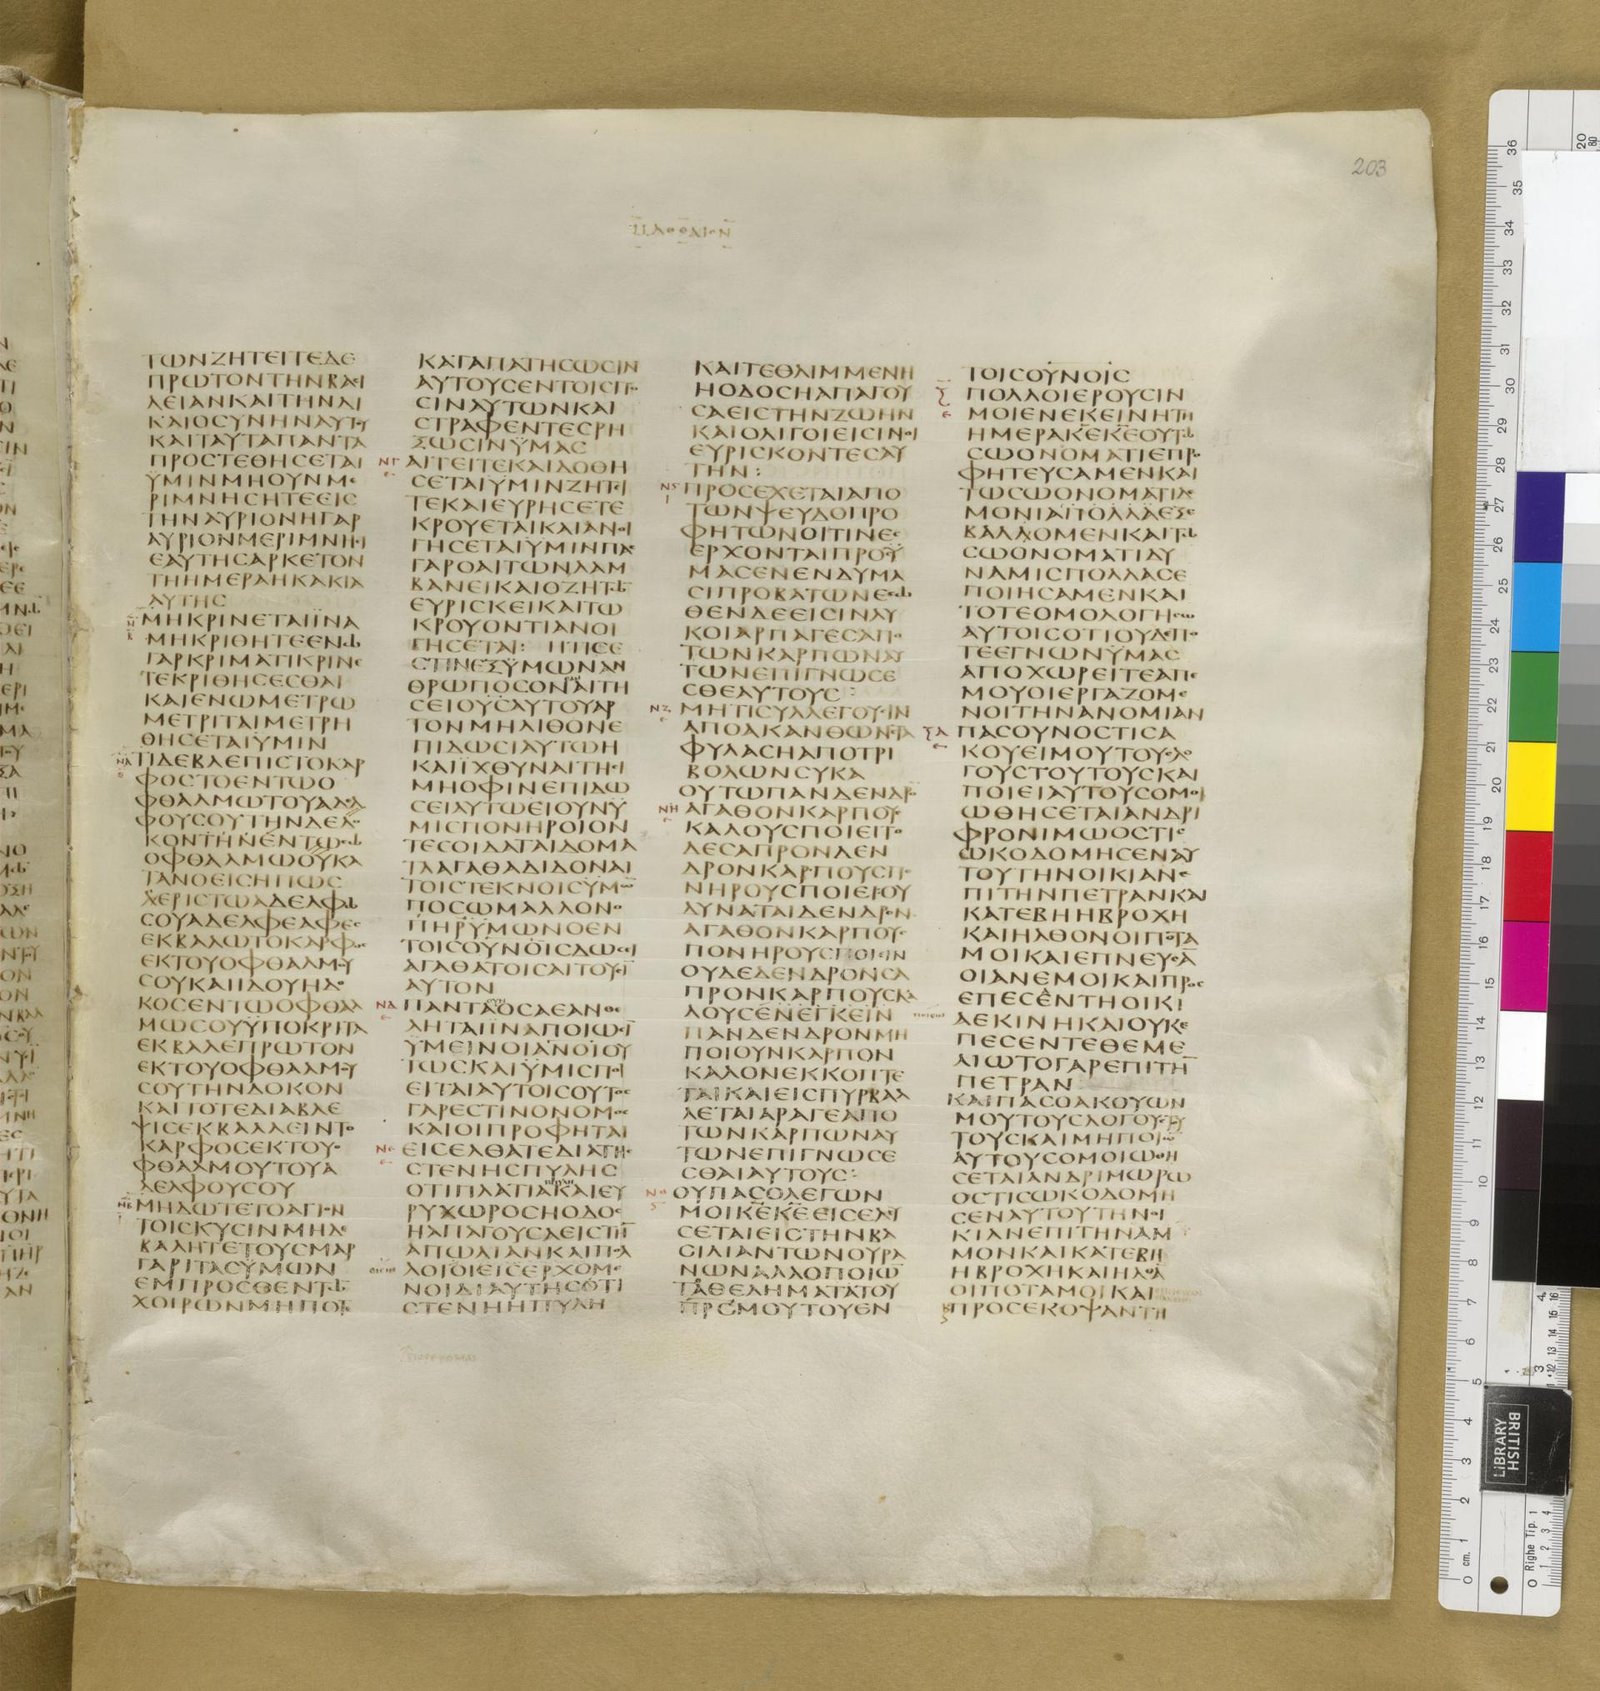 203
ΜΑΘΘΑΙΟΝ
ΤΩΝΖΗΤΕΙΤΕΔΕ
ΠΡΩΤΟΝΤΗΝΒΑϹΙ
ΛΕΙΑΝΚΑΙΤΗΝΔΙ
ΚΑΙΟϹΥΝΗΝΑΥΤΟΥ
ΚΑΙΤΑΥΤΑΠΑΝΤΑ
ΠΡΟϹΤΕΘΗϹΕΤΑΙ
ΥΜΙΝΜΗΟΥΝΜΕ
ΡΙΜΝΗϹΗΤΕΕΙϹ
ΤΗΝΑΥΡΙΟΝΗΓΑΡ
ΑΥΡΙΟΝΜΕΡΙΜΝΗϹΙ
ΕΑΥΤΗϹΑΡΚΕΤΟΝ
ΤΗΗΜΕΡΑΗΚΑΚΙΑ
ΑΥΤΗϹ
ΜΗΚΡΙΝΕΤΑΙΪΝΑ
ΜΗΚΡΙΘΗΤΕΕΝΩ
ΓΑΡΚΡΙΜΑΤΙΚΡΙΝΕ
ΤΕΚΡΙΘΗϹΕϹΘΑΙ
ΚΑΙΕΝΩΜΕΤΡΩ
ΜΕΤΡΙΤΑΙΜΕΤΡΗ
ΘΗϹΕΤΑΙΫΜΙΝ
ΤΙΔΕΒΛΕΠΙϹΤΟΚΑΡ
ΦΟϹΤΟΕΝΤΩΟ
ΦΘΑΛΜΩΤΟΥΑΔΕΛ
ΦΟΥϹΟΥΤΗΝΔΕΔΟ
ΚΟΝΤΗΝΕΝΤΩϹΩ
ΟΦΘΑΛΜΩΟΥΚΑ
ΤΑΝΟΕΙϹΗΠΩϹ
ΛΕΡΙϹΤΩΑΔΕΛΦΩ
ϹΟΥΑΔΕΛΦΕΑΦΕϹ
ΕΚΒΑΛΩΤΟΚΑΡΦΟϹ
ΕΚΤΟΥΟΦΘΑΛΜΟΥ
ϹΟΥΚΑΙΙΔΟΥΗΔΟ
ΚΟϹΕΝΤΩΟΦΘΑΛ
ΜΩϹΟΥΫΠΟΚΡΙΤΑ
ΕΚΒΑΛΕΠΡΩΤΟΝ
ΕΚΤΟΥΟΦΘΑΛΜΟΥ
ϹΟΥΤΗΝΔΟΚΟΝ
ΚΑΙΤΟΤΕΔΙΑΒΛΕ
ΨΙϹΕΚΒΑΛΛΕΙΝΤΟ
ΚΑΡΦΟϹΕΚΤΟΥΟ
ΦΘΑΛΜΟΥΤΟΥΑ
ΔΕΛΦΟΥϹΟΥ
ΜΗΔΩΤΕΤΟΑΓΙΟΝ
ΤΟΙϹΚΥϹΙΝΜΗΔΕ
ΒΑΛΗΤΕΤΟΥϹΜΑΡ
ΓΑΡΙΤΑϹΫΜΩΝ
ΕΜΠΡΟϹΘΕΝΤΩ
ΧΟΙΡΩΝΜΗΠΟΤΕ
ΚΑΤΑΠΑΤΗϹΩϹΙΝ
ΑΥΤΟΥϹΕΝΤΟΙϹΠΟ
ϹΙΝΑΥΤΩΝΚΑΙ
ϹΤΡΑΦΕΝΤΕϹΡΗ
ΞΩϹΙΝΫΜΑϹ
ΑΙΤΕΙΤΕΚΑΙΔΟΘΗ
ϹΕΤΑΙΥΜΙΝΖΗΤΙ
ΤΕΚΑΙΕΥΡΗϹΕΤΕ
ΚΡΟΥΕΤΑΙΚΑΙΑΝΟΙ
ΓΗϹΕΤΑΙΫΜΙΝΠΑϹ
ΓΑΡΟΑΙΤΩΝΛΑΜ
ΒΑΝΕΙΚΑΙΟΖΗΤΩ
ΕΥΡΙϹΚΕΙΚΑΙΤΩ
ΚΡΟΥΟΝΤΙΑΝΟΙ
ΓΗϹΕΤΑΙ: ΗΤΙϹΕ
ϹΤΙΝΕΞΥΜΩΝΑΝ
ΘΡΩΠΟϹΟΝΑΙΤΗ
ϹΕΙΟΥϹΑΥΤΟΥΑΡ
ΤΟΝΜΗΛΙΘΟΝΕ
ΠΙΔΩϹΙΑΥΤΩΗ
ΚΑΙΪΧΘΥΝΑΙΤΗϹΙ
ΜΗΟΦΙΝΕΠΙΔΩ
ϹΕΙΑΥΤΩΕΙΟΥΝΥ
ΜΙϹΠΟΝΗΡΟΙΟΝ
ΤΕϹΟΙΔΑΤΑΙΔΟΜΑ
ΤΑΑΓΑΘΑΔΙΔΟΝΑΙ
ΤΟΙϹΤΕΚΝΟΙϹΫΜΩ
ΠΟϹΩΜΑΛΛΟΝΟ
ΠΗΡΫΜΩΝΟΕΝ
ΤΟΙϹΟΥΝΟΙϹΔΩϹΙ
ΑΓΑΘΑΤΟΙϹΑΙΤΟΥϹΙ
ΑΥΤΟΝ
ΠΑΝΤΑΟϹΑΕΑΝΘΕ
ΛΗΤΑΙΪΝΑΠΟΙΩϹΙ
ΫΜΕΙΝΟΙΑΝΟΙΟΥ
ΤΩϹΚΑΙΫΜΙϹΠΟΙ
ΕΙΤΑΙΑΥΤΟΙϹΟΥΤΟϹ
ΓΑΡΕϹΤΙΝΟΝΟΜΟϹ
ΚΑΙΟΙΠΡΟΦΗΤΑΙ
ΕΙϹΕΛΘΑΤΕΔΙΑΤΗϹ
ϹΤΕΝΗϹΠΥΛΗϹ
ΟΤΙΠΛΑΤΙΑΚΑΙΕΥ
ΡΥΧΩΡΟϹΗΟΔΟϹ
ΗΑΠΑΓΟΥϹΑΕΙϹΤΗ
ΑΠΩΛΙΑΝΚΑΙΠΟΛ
ΛΟΙΟΙΕΙϹΕΡΧΟΜΕ
ΝΟΙΔΙΑΥΤΗϹΟΤΙ
ϹΤΕΝΗΗΠΥΛΗ
ΚΑΙΤΕΘΛΙΜΜΕΝΗ
ΗΟΔΟϹΗΑΠΑΓΟΥ
ϹΑΕΙϹΤΗΝΖΩΗΝ
ΚΑΙΟΛΙΓΟΙΕΙϹΙΝΟΙ
ΕΥΡΙϹΚΟΝΤΕϹΑΥ
ΤΗΝ:
ΠΡΟϹΕΧΕΤΑΙΑΠΟ
ΤΩΝΨΕΥΔΟΠΡΟ
ΦΗΤΩΝΟΙΤΙΝΕϹ
ΕΡΧΟΝΤΑΙΠΡΟΥ
ΜΑϹΕΝΕΝΔΥΜΑ
ϹΙΠΡΟΒΑΤΩΝΕϹΩ
ΘΕΝΔΕΕΙϹΙΝΛΥ
ΚΟΙΑΡΠΑΓΕϹΑΠΟ
ΤΩΝΚΑΡΠΩΝΑΥ
ΤΩΝΕΠΙΓΝΩϹΕ
ϹΘΕΑΥΤΟΥϹ:
ΜΗΤΙϹΥΛΛΕΓΟΥϹΙΝ
ΑΠΟΑΚΑΝΘΩΝϹΤΑ
ΦΥΛΑϹΗΑΠΟΤΡΙ
ΒΟΛΩΝϹΥΚΑ
ΟΥΤΩΠΑΝΔΕΝΔΡΟ
ΑΓΑΘΟΝΚΑΡΠΟΥϹ
ΚΑΛΟΥϹΠΟΙΕΙΤΟ
ΔΕϹΑΠΡΟΝΔΕΝ
ΔΡΟΝΚΑΡΠΟΥϹΠΟ
ΝΗΡΟΥϹΠΟΙΕΙΟΥ
ΔΥΝΑΤΑΙΔΕΝΔΡΟΝ
ΑΓΑΘΟΝΚΑΡΠΟΥϹ
ΠΟΝΗΡΟΥϹΠΟΙΕΙΝ
ΟΥΔΕΔΕΝΔΡΟΝϹΑ
ΠΡΟΝΚΑΡΠΟΥϹΚΑ
ΛΟΥϹΕΝΕΓΚΕΙΝ
ΠΑΝΔΕΝΔΡΟΝΜΗ
ΠΟΙΟΥΝΚΑΡΠΟΝ
ΚΑΛΟΝΕΚΚΟΠΤΕ
ΤΑΙΚΑΙΕΙϹΠΥΡΒΑΛ
ΛΕΤΑΙΑΡΑΓΕΑΠΟ
ΤΩΝΚΑΡΠΩΝΑΥ
ΤΩΝΕΠΙΓΝΩϹΕ
ϹΘΑΙΑΥΤΟΥϹ:
ΟΥΠΑϹΟΛΕΓΩΝ
ΜΟΙΚΕΚΕΕΙϹΕΛΕΥ
ϹΕΤΑΙΕΙϹΤΗΝΒΑ
ϹΙΛΙΑΝΤΩΝΟΥΡΑ
ΝΩΝΑΛΛΟΠΟΙΩ
ΤΑΘΕΛΗΜΑΤΑΤΟΥ
ΠΡϹΜΟΥΤΟΥΕΝ
ΤΟΙϹΟΥΝΟΙϹ
ΠΟΛΛΟΙΕΡΟΥϹΙΝ
ΜΟΙΕΝΕΚΕΙΝΗΤΗ
ΗΜΕΡΑΚΕΚΕΟΥΤΩ
ϹΩΟΝΟΜΑΤΙΕΠΡΟ
ΦΗΤΕΥϹΑΜΕΝΚΑΙ
ΤΩϹΩΟΝΟΜΑΤΙΔΑΙ
ΜΟΝΙΑΠΟΛΛΑΕΞΕ
ΒΑΛΛΟΜΕΝΚΑΙΤΩ
ϹΩΟΝΟΜΑΤΙΔΥ
ΝΑΜΙϹΠΟΛΛΑϹΕ
ΠΟΙΗϹΑΜΕΝΚΑΙ
ΤΟΤΕΟΜΟΛΟΓΗϹΩ
ΑΥΤΟΙϹΟΤΙΟΥΔΕΠΟ
ΤΕΕΓΝΩΝΫΜΑϹ
ΑΠΟΧΩΡΕΙΤΕΑΠΕ
ΜΟΥΟΙΕΡΓΑΖΟΜΕ
ΝΟΙΤΗΝΑΝΟΜΙΑΝ
ΠΑϹΟΥΝΟϹΤΙϹΑ
ΚΟΥΕΙΜΟΥΤΟΥϹΛΟ
ΓΟΥϹΤΟΥΤΟΥϹΚΑΙ
ΠΟΙΕΙΑΥΤΟΥϹΟΜΟΙ
ΩΘΗϹΕΤΑΙΑΝΔΡΙ
ΦΡΟΝΙΜΩΟϹΤΙϹ
ΩΚΟΔΟΜΗϹΕΝΑΥ
ΤΟΥΤΗΝΟΙΚΙΑΝΕ
ΠΙΤΗΝΠΕΤΡΑΝΚΑΙ
ΚΑΤΕΒΗΗΒΡΟΧΗ
ΚΑΙΗΛΘΟΝΟΙΠΟΤΑ
ΜΟΙΚΑΙΕΠΝΕΥϹΑ
ΟΙΑΝΕΜΟΙΚΑΙΠΡΟϹ
ΕΠΕϹΕΝΤΗΟΙΚΙ
ΑΕΚΙΝΗΚΑΙΟΥΚΕ
ΠΕϹΕΝΤΕΘΕΜΕ
ΛΙΩΤΟΓΑΡΕΠΙΤΗ
ΠΕΤΡΑΝ
ΚΑΙΠΑϹΟΑΚΟΥΩΝ
ΜΟΥΤΟΥϹΛΟΓΟΥϹΤΟΥ
ΤΟΥϹΚΑΙΜΗΠΟΙΩ
ΑΥΤΟΥϹΟΜΟΙΩΘΗ
ϹΕΤΑΙΑΝΔΡΙΜΩΡΩ
ΟϹΤΙϹΩΚΟΔΟΜΗ
ϹΕΝΑΥΤΟΥΤΗΝΟΙ
ΚΙΑΝΕΠΙΤΗΝΑΜ
ΜΟΝΚΑΙΚΑΤΕΒΗ
ΗΒΡΟΧΗΚΑΙΗΛΘΟ
ΟΙΠΟΤΑΜΟΙΚΑΙ
ΠΡΟϹΕΚΟΨΑΝΤΗ
BRITISH
LIBRARY